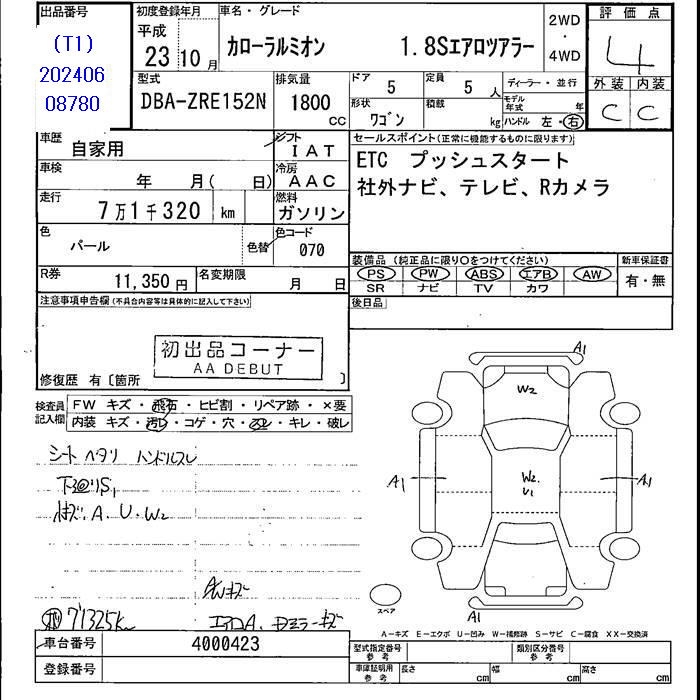 出品番号
(T1)
202406
08780
初度登録年月
平成
23 10 月
車名・グレード
カローラルミオン 1.8Sエアロツアラー
2WD
・
4WD
評価点
4
外装 内装
C C
型式
DBA-ZRE152N
排気量
1800
CC
ドア
5
定員
5 人
形状
ワゴン
積載
kg
ディーラー・並行
モデル年式 年
ハンドル 左・右
車歴
自家用
シフト
IAT
車検
年 月( 日)
冷房
AAC
走行
7万1千320 km
燃料
ガソリン
色
パール
色替
色コード
070
R券
11,350円
名変期限
月 日
セールスポイント(正常に機能するものに限ります)
ETC プッシュスタート
社外ナビ、テレビ、Rカメラ
装備品(純正品に限り○をつけてください)
PS PW ABS エアB AW
SR ナビ TV カワ
新車保証書
有・無
後日品
注意事項申告欄(不具合内容等は具体的に記入して下さい)
初出品コーナー
AA DEBUT
修復歴 有〔箇所 〕
検査員記入欄
FW キズ・飛石・ヒビ割・リペア跡・×要
内装 キズ・汚レ・コゲ・穴・スレ・キレ・破レ
シートヘタリ ハンドルスレ
下回りS1
A.U.W2
AWキズ
71325K
A1
W2
A1
W2.
U1
A1
A1
スペア
A-キズ E-エクボ U-凹み W-補修跡 S-サビ C-腐食 XX-交換済
車台番号
4000423
登録番号
型式指定番号
参考
類別区分番号
参考
車庫証明用
参考
長さ cm
幅 cm
高さ cm